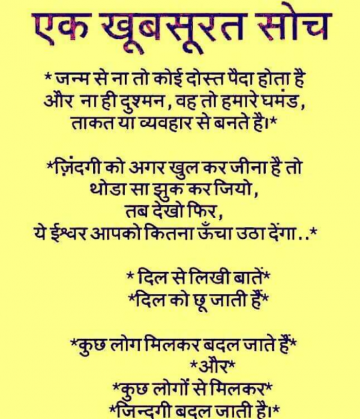 एक खूबसूरत सोच
* जन्म से ना तो कोई दोस्त पैदा होता है
और ना ही दुश्मन , वह तो हमारे घमंड ,
ताकत या व्यवहार से बनते है।*
*ज़िंदगी को अगर खुल कर जीना है तो
थोडा सा झुक कर जियो ,
तब देखो फिर ,
ये ईश्वर आपको कितना ऊँचा उठा देंगा..*
* दिल से लिखी बातें*
*दिल को छू जाती हैं*
*कुछ लोग मिलकर बदल जाते हैं*
*और*
*कुछ लोगों से मिलकर*
*जिन्दगी बदल जाती है।*